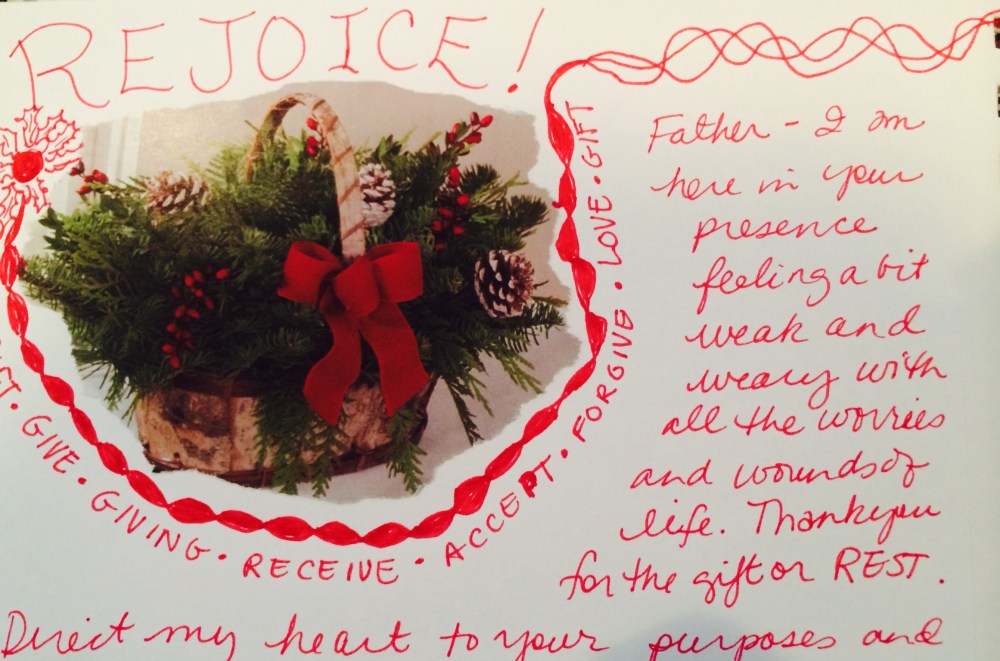 REJOICE!
GIVE • GIVING • RECEIVE • ACCEPT • FORGIVE • LOVE • GIFT
Father - I am
here in your
presence
feeling a bit
weak and
weary with
all the worries
and wounds of
life. Thank you
for the gift or REST.
Direct my heart to your purposes and